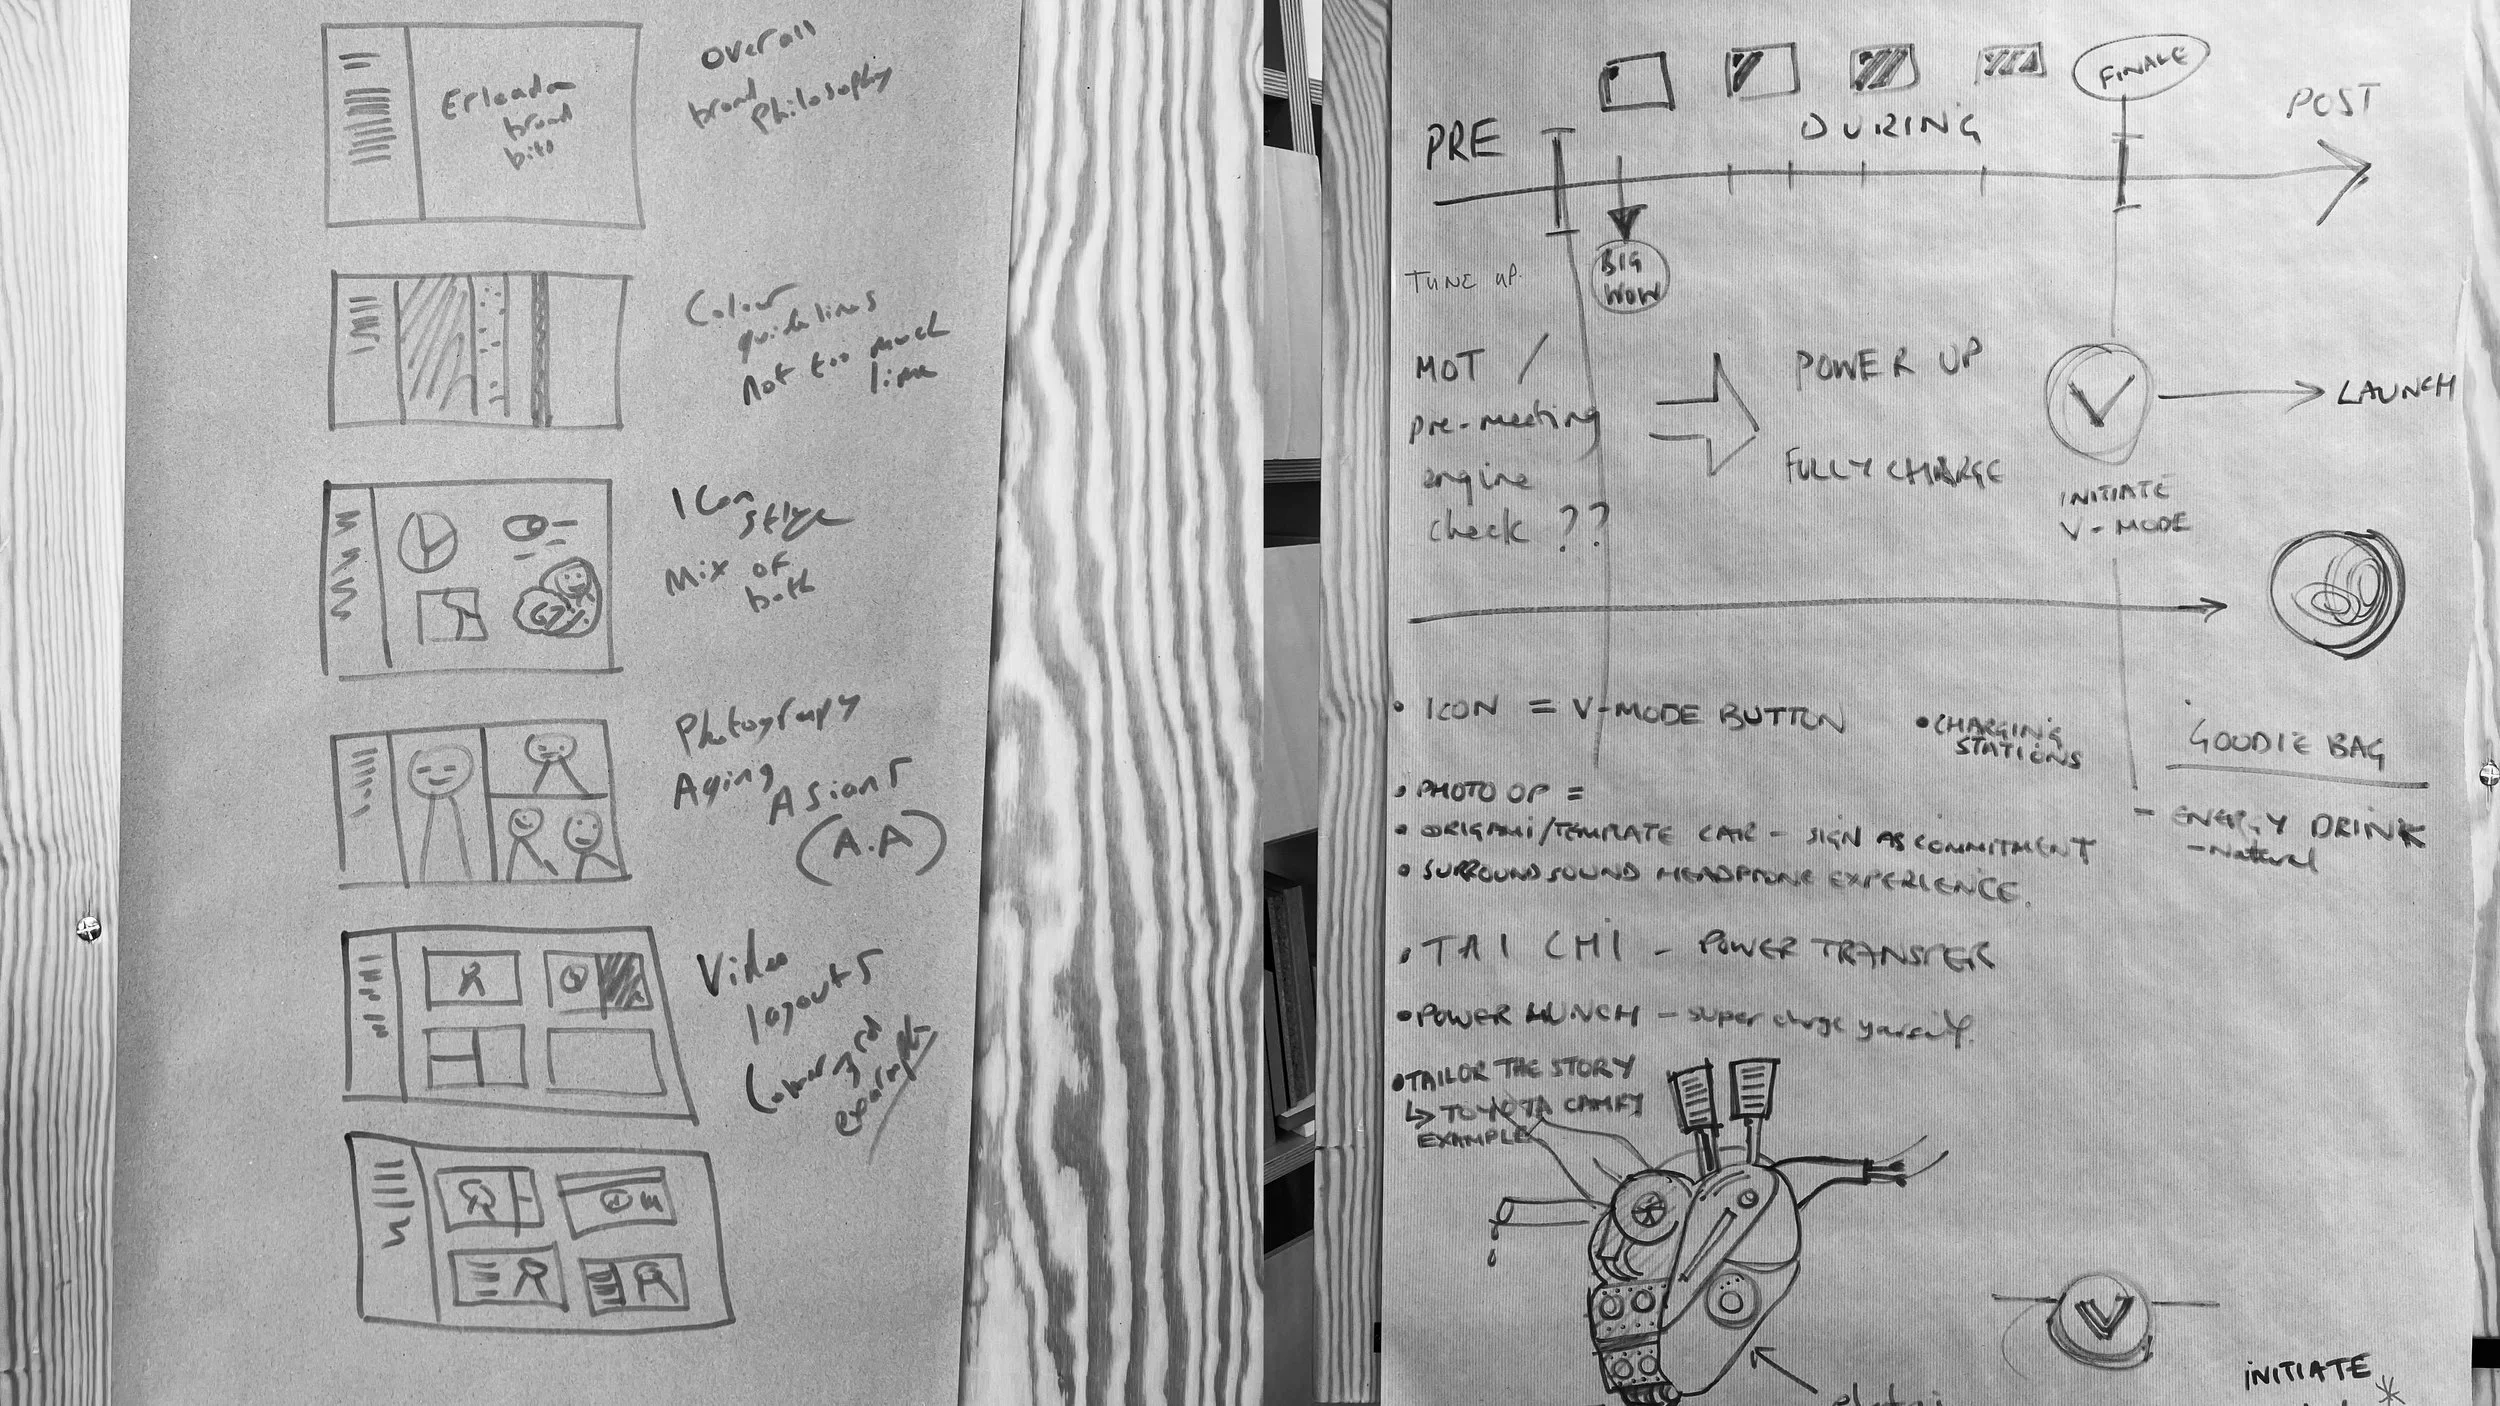 Erleada
brand
bits
Overall
brand
Philosophy
Colour
guidelines
not too much
lime
Icon
style
Mix of
both
Photograpy
Aging
Asians
(A.A)
Video
layouts
examples
PRE
DURING
FINALE
POST
BIG
WOW
TUNE UP.
MOT /
pre-meeting
engine
check ??
POWER UP
FULLY CHARGE
V
LAUNCH
INITIATE
V-MODE
• ICON = V-MODE BUTTON
• CHARGING
STATIONS
• PHOTO OP =
• ORIGAMI/TEMPLATE CAR - SIGN AS COMMITMENT
• SURROUND SOUND HEADPHONE EXPERIENCE.
• TAI CHI - POWER TRANSFER
• POWER LUNCH - super charge yourself.
• TAILOR THE STORY
↳ TOYOTA CAMRY
EXAMPLE
GOODIE BAG
- ENERGY DRINK
- Natural
V
INITIATE